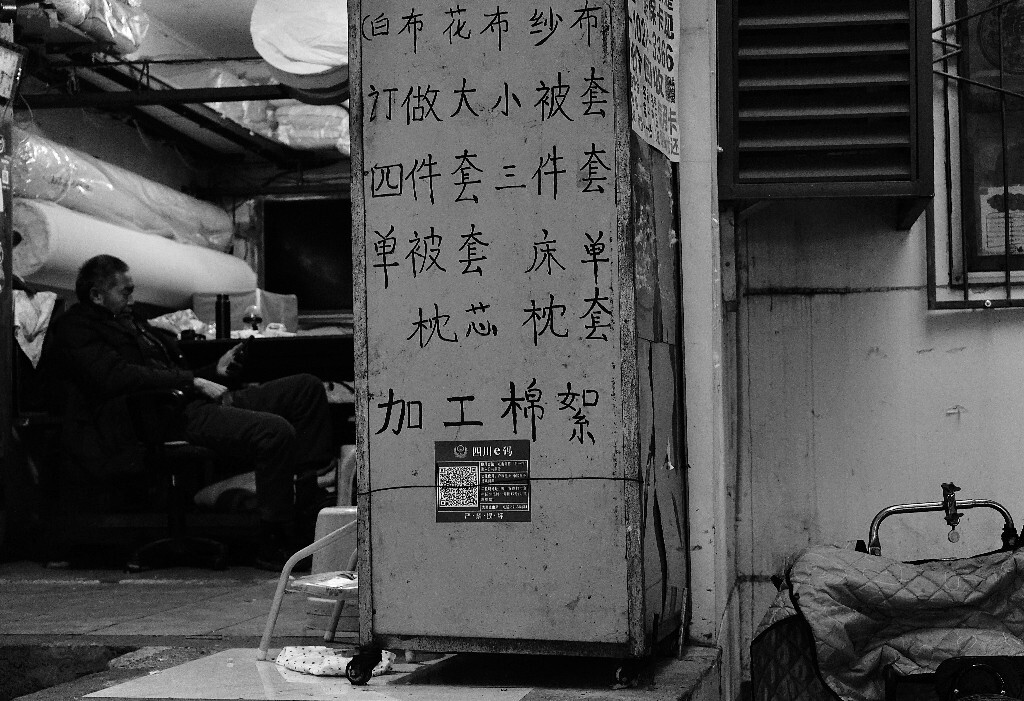 (白布花布纱布
订做大小被套
四件套三件套
单被套 床单
枕芯 枕套
加工棉絮
四川e码